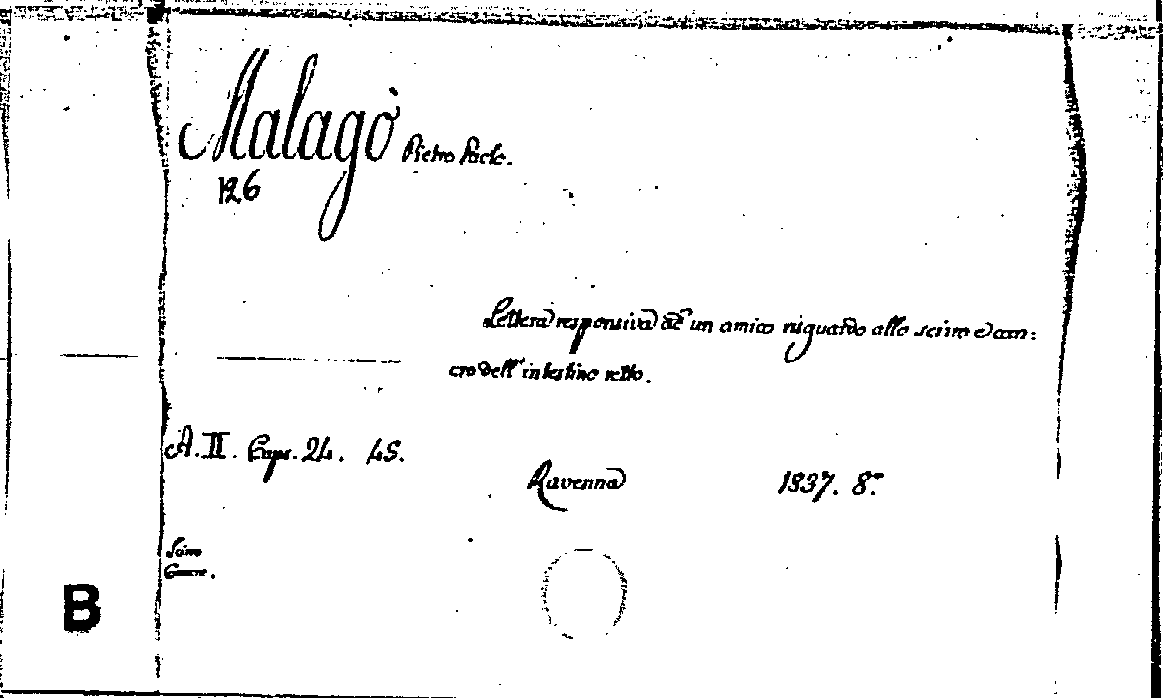 Malagò Pietro Paolo.
126
Lettera responsiva ad un amico riguardo allo scirro e can:
cro dell' intestino retto.
A. II. Caps. 24. 45.
Ravenna 1837. 8.°
Scirro
B